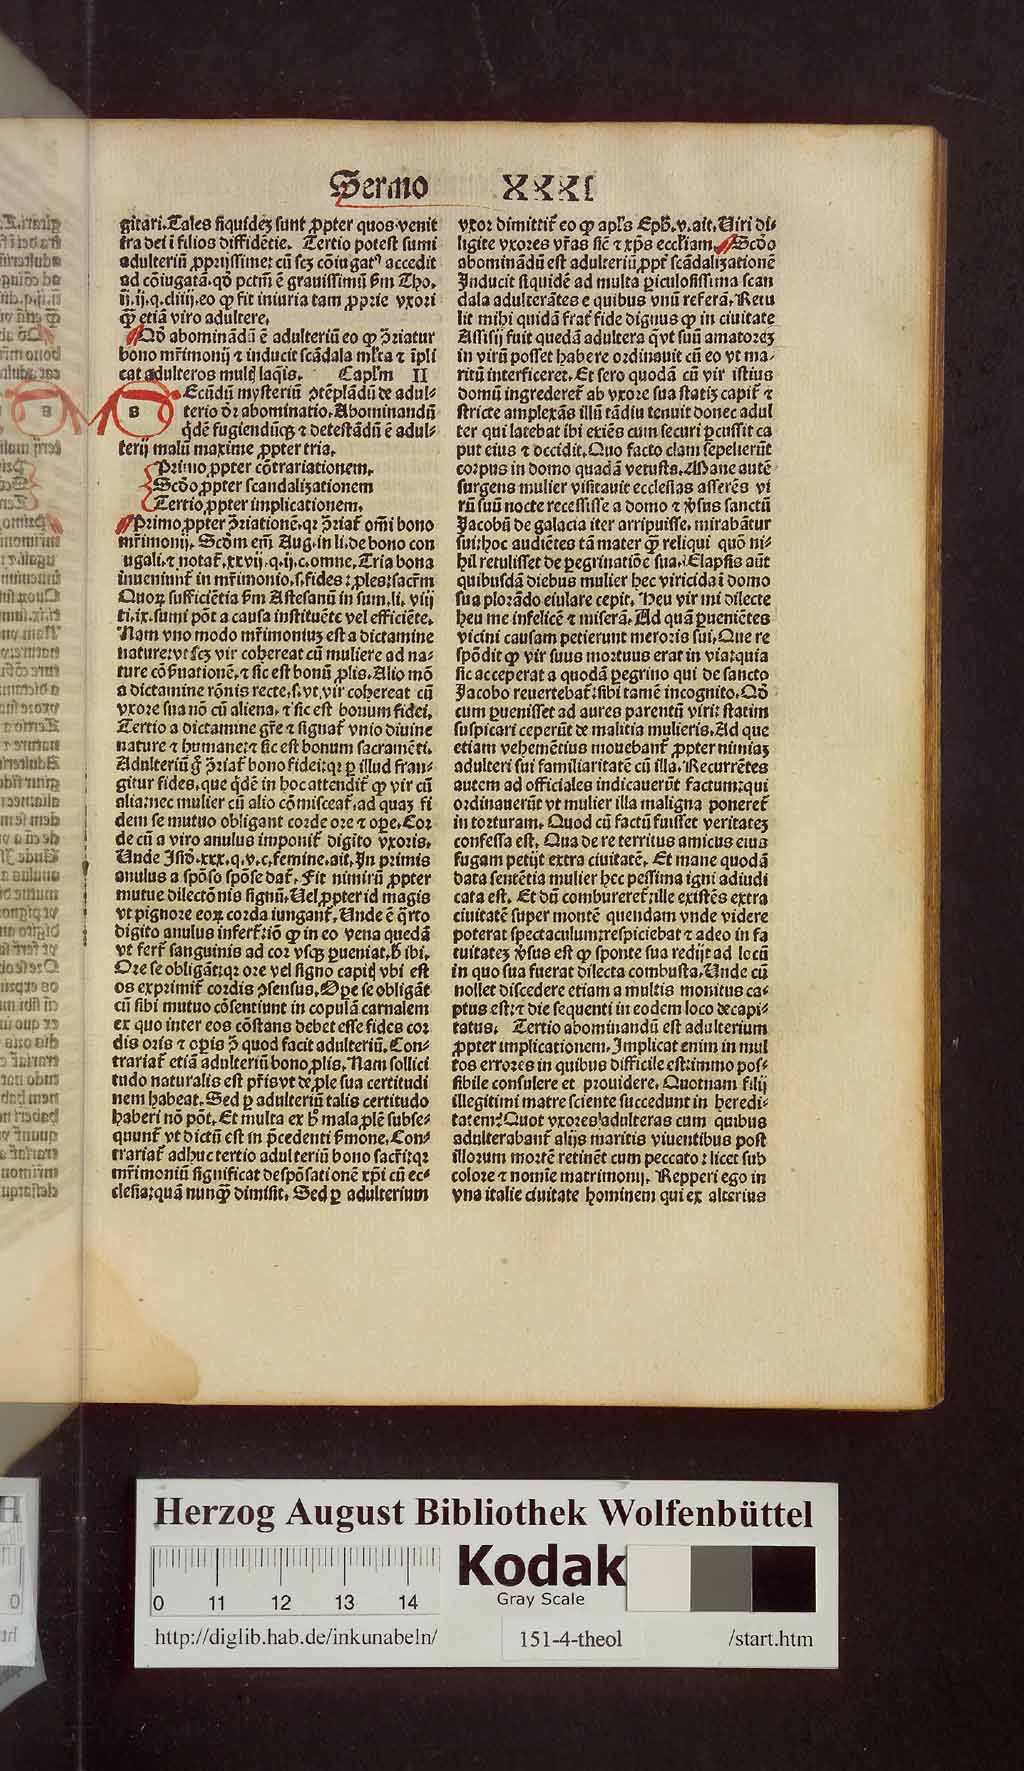 Sermo XXXI
gitari. Tales siquidez sunt ꝓpter quos venit
ira dei ī filios diffidētie. Tertio potest sumi
adulteriū ꝓprijssime: cū scz cōiugatꝰ accedit
ad cōiugatā. qd̛ pctm̄ ē grauissimū ẜm Tho.
ij. ij. q. cliiij. eo ꝙ fit iniuria tam ꝓprie vxori
ꝙ̄ etiā viro adultere.
Qd̛ abominādū ē adulteriū eo ꝙ ꝯ̄riatur
bono mr̄imonij ⁊ inducit scādala ml̛ta ⁊ īpli
cat adulteros multꝭ laq̄is. Capl̛m II
s Ecūdū mysteriū ꝯtēplādū de adul-
terio dr̄ abominatio. Abominandū
q̄dē fugiendūqꝫ ⁊ detestādū ē adul-
terij malū maxime ꝓpter tria.
Primo ꝓpter cōtrariationem.
Scd̛o ꝓpter scandalizationem
Tertio ꝓpter implicationem.
Primo ꝓpter ꝯ̄riationē. qr ꝯ̄riat᷑ om̄i bono
mr̄imonij. Scd̛m em̄ Aug. in li. de bono con
ugali. ⁊ notat᷑. xxvij. q. ij. c. omne. Tria bona
inueniunt᷑ in mr̄imonio. s. fides: ꝓles: sacrm̄
Quoꝝ sufficiētia ẜm Astesanū in sum. li. viij
ti. ix. sumi pōt a causa instituēte vel efficiēte.
Nam vno modo mr̄imoniuꝫ est a dictamine
nature: vt scꝫ vir cohereat cū muliere ad na-
ture cōẜuationē. ⁊ sic est bonū ꝓlis. Alio mō
a dictamine rōnis recte. s. vt vir cohereat cū
vxore sua nō cū aliena. ⁊ sic est bonum fidei.
Tertio a dictamine gr̄e ⁊ signat᷑ vnio diuine
nature ⁊ humane: ⁊ sic est bonum sacramēti.
Adulteriū gͦ ꝯ̄riat᷑ bono fidei: qr ꝑ illud fran-
gitur fides. que q̄dē in hoc attendit᷑ ꝙ vir cū
alia: nec mulier cū alio cōmisceat᷑. ad quaꝫ fi
dem se mutuo obligant corde ore ⁊ oꝑe. Cor
de cū a viro anulus imponit᷑ digito vxoris.
Unde Isid̛. xxx. q. v. c. femine. ait. In primis
anulus a spōso spōse dat᷑. Fit nimirū ꝓpter
mutue dilectōnis signū. Uel ꝓpter id magis
vt pignore eoꝝ corda iungant᷑. Unde ē q̄rto
digito anulus infert᷑: iō ꝙ in eo vena quedā
vt fert᷑ sanguinis ad cor vsqꝫ ꝑueniat. h̛ ibi.
Ore se obligāt: qr ore vel signo capitꝭ vbi est
os exprimit᷑ cordis ꝯsensus. Oꝑe se obligāt
cū sibi mutuo cōsentiunt in copulā carnalem
ex quo inter eos cōstans debet esse fides cor
dis oris ⁊ oꝑis ꝯ̄ quod facit adulteriū. Con-
trariat᷑ etiā adulteriū bono ꝓlis. Nam sollici
tudo naturalis est pr̄is vt de ꝓle sua certitudi
nem habeat. Sed ꝑ adulteriū talis certitudo
haberi nō pōt. Et multa ex h̛ mala ꝓlē subse-
quunt᷑ vt dictū est in p̄cedenti ẜmone. Con-
trariat᷑ adhuc tertio adulteriū bono sacr̄i: qr
mr̄imoniū significat despōsationē xp̄i cū ec-
clesia: quā nunꝙ̄ dimisit. Sed ꝑ adulterium
vxor dimittit᷑ eo ꝙ apl̛s Eph̛. v. ait. Uiri di-
ligite vxores vr̄as sic̄ ⁊ xp̄s eccl̛iam. Scd̛o
abominādū est adulteriū ꝓpt᷑ scādalizationē
Inducit siquidē ad multa ꝑiculosissima scan
dala adulterātes e quibus vnū referā. Retu
lit mihi quidā frat᷑ fide dignus ꝙ in ciuitate
Assisij fuit quedā adultera q̄ vt suū amatoreꝫ
in virū posset habere ordinauit cū eo vt ma-
ritū interficeret. Et sero quodā cū vir istius
domū ingrederet᷑ ab vxore sua statiꝫ capit᷑ ⁊
stricte amplexās illū tādiu tenuit donec adul
ter qui latebat ibi exiēs cum securi ꝑcussit ca
put eius ⁊ occidit. Quo facto clam sepelierūt
corpus in domo quadā vetusta. Mane autē
surgens mulier visitauit ecclesias asserēs vi
rū suū nocte recessisse a domo ⁊ v̛sus sanctū
Jacobū de galacia iter arripuisse. mirabātur
sui: hoc audiētes tā mater ꝙ̄ reliqui quō ni-
hil retulisset de ꝑegrinatiōe sua. Elapsis aūt
quibusdā diebus mulier hec viricida ī domo
sua plorādo eiulare cepit. Heu vir mi dilecte
heu me infelicē ⁊ miserā. Ad quā ꝑueniētes
vicini causam petierunt meroris sui. Que re
spōdit ꝙ vir suus mortuus erat in via: quia
sic acceperat a quodā ꝑegrino qui de sancto
Jacobo reuertebat᷑: sibi tamē incognito. Qd̛
cum ꝑuenisset ad aures parentū viri: statim
suspicari ceperūt de malitia mulieris. Ad que
etiam vehemētius mouebant᷑ ꝓpter nimiaꝫ
adulteri sui familiaritatē cū illa. Recurrētes
autem ad officiales indicauerūt factum: qui
ordinauerūt vt mulier illa maligna poneret᷑
in torturam. Quod cū factū fuisset veritateꝫ
confessa est. Qua de re territus amicus eius
fugam petijt extra ciuitatē. Et mane quodā
data sentētia mulier hec pessima igni adiudi
cata est. Et dū combureret᷑: ille existēs extra
ciuitatē super montē quendam vnde videre
poterat spectaculum: respiciebat ⁊ adeo in fa
tuitateꝫ v̛sus est ꝙ sponte sua redijt ad locū
in quo sua fuerat dilecta combusta. Unde cū
nollet discedere etiam a multis monitus ca-
ptus est: ⁊ die sequenti in eodem loco decapi-
tatus. Tertio abominandū est adulterium
ꝓpter implicationem. Implicat enim in mul
tos errores in quibus difficile est: immo pos-
sibile consulere et prouidere. Quotnam filij
illegitimi matre sciente succedunt in heredi-
tatem? Quot vxores adulteras cum quibus
adulterabant᷑ alijs maritis viuentibus post
illorum mortē retinēt cum peccato: licet sub
colore ⁊ nomīe matrimonij. Repperi ego in
vna italie ciuitate hominem qui ex alterius
Herzog August Bibliothek Wolfenbüttel
Kodak
Gray Scale
0 11 12 13 14
http://diglib.hab.de/inkunabeln/ 151-4-theol /start.htm